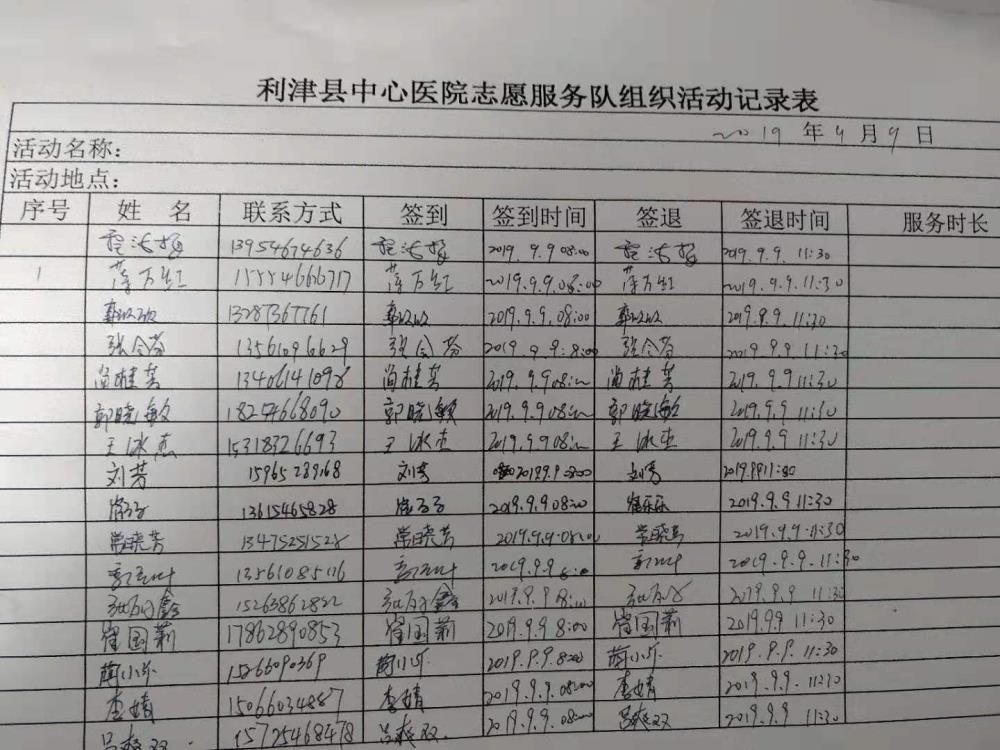 利津县中心医院志愿服务队组织活动记录表
2019 年 9 月 9 日
活动名称：
活动地点：
序号 姓 名 联系方式 签到 签到时间 签退 签退时间 服务时长
13954674636 2019.9.9 08:00 2019.9.9. 11:30
1 薄万红 15554666717 薄万红 2019.9.9.08:00 薄万红 2019.9.9.11:30
13287367761 2019.9.9.08:00 2019.9.9. 11:30
张令芬 13561096629 张令芬 2019.9.9:8:00 张令芬 2019.9.9 11:30
尚桂芳 13406141098 尚桂芳 2019.9.9 尚桂芳 2019.9.9 11:30
郭晓敏 郭晓敏 2019.9.9 郭晓敏 2019.9.9 11:30
王冰杰 15318326693 王冰杰 2019.9.9 王冰杰 2019.9.9 11:30
刘芳 15965289168 刘芳 刘芳
13615465828 2019.9.9 08:00 崔乐乐 2019.9.9 11:30
常晓芳 13475251528 常晓芳 2019.9.9.08:00 常晓芳 2019.9.9.11:30
2019.9.9 2019.9.9. 11:30
2019.9.9 2019.9.9 11:30
崔国莉 17862890853 崔国莉 2019.9.9 8:00 崔国莉 2019.99 11:30
蔺小乐 蔺小乐 2019.9.9.8:00 蔺小乐 2019.9.9. 11:30
李婧 15066034887 李婧 2019.9.9. 08:00 李婧 2019.9.9. 11:30
吕爽双 15725468478 吕爽双 2019.9.9. 08:00 吕爽双 2019.9.9 11:30